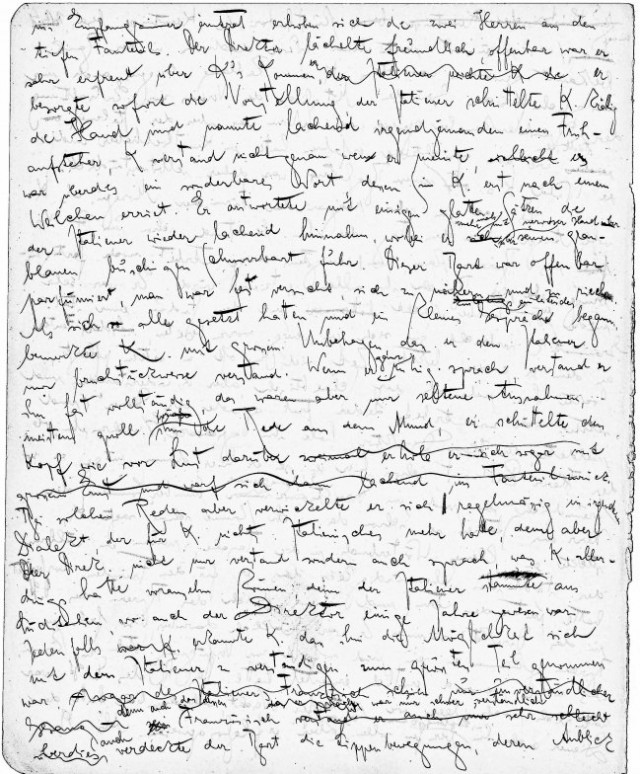 ins Empfangszimmer eintrat erhoben sich die zwei Herren aus den
tiefen Fauteuils. Der Direktor lächelte freundlich, offenbar war er
sehr erfreut über K's Kommen, er
besorgte sofort die Vorstellung der Italiener schüttelte K. kräftig
die Hand und nannte lachend irgendjemanden einen Früh-
aufsteher, K verstand nicht genau wen er meinte es
war überdies ein sonderbares Wort, dessen Sinn K. erst nach einem
Weilchen erriet. Er antwortete mit einigen glatten Sätzen die
der Italiener wieder lachend hinnahm, wobei er mehrmals mit nervöser Hand über seinen grau-
blauen buschigen Schnurrbart fuhr. Dieser Bart war offenbar
parfümiert, man war fast versucht, sich zu nähern und zu riechen
Als sich alle gesetzt hatten und ein kleines einleitendes Gespräch begann
bemerkte K. mit grossem Unbehagen dass er den Italiener
nur bruchstückweise verstand. Wenn er ganz ruhig sprach verstand er
ihn fast vollständig, das waren aber nur seltene Ausnahmen,
meistens quoll ihm die Rede aus dem Mund, er schüttelte den
Kopf wie vor Lust darüber
Bei solchen Reden aber verwickelte er sich regelmässig in irgend
Dialekt der für K. nichts Italienisches mehr hatte, den aber
der Direktor nicht nur verstand sondern auch sprach, was K. aller-
dings hatte voraussehn können, denn der Italiener stammte aus
Süditalien, wo auch der Direktor einige Jahre gewesen war.
Jedenfalls erkannte K. dass ihm die Möglichkeit sich
mit dem Italiener zu verständigen zum grössten Teil genommen
war
denn auch dessen Französisch war nur schwer verständlich
auch verdeckte der Bart die Lippenbewegungen, deren Anblick